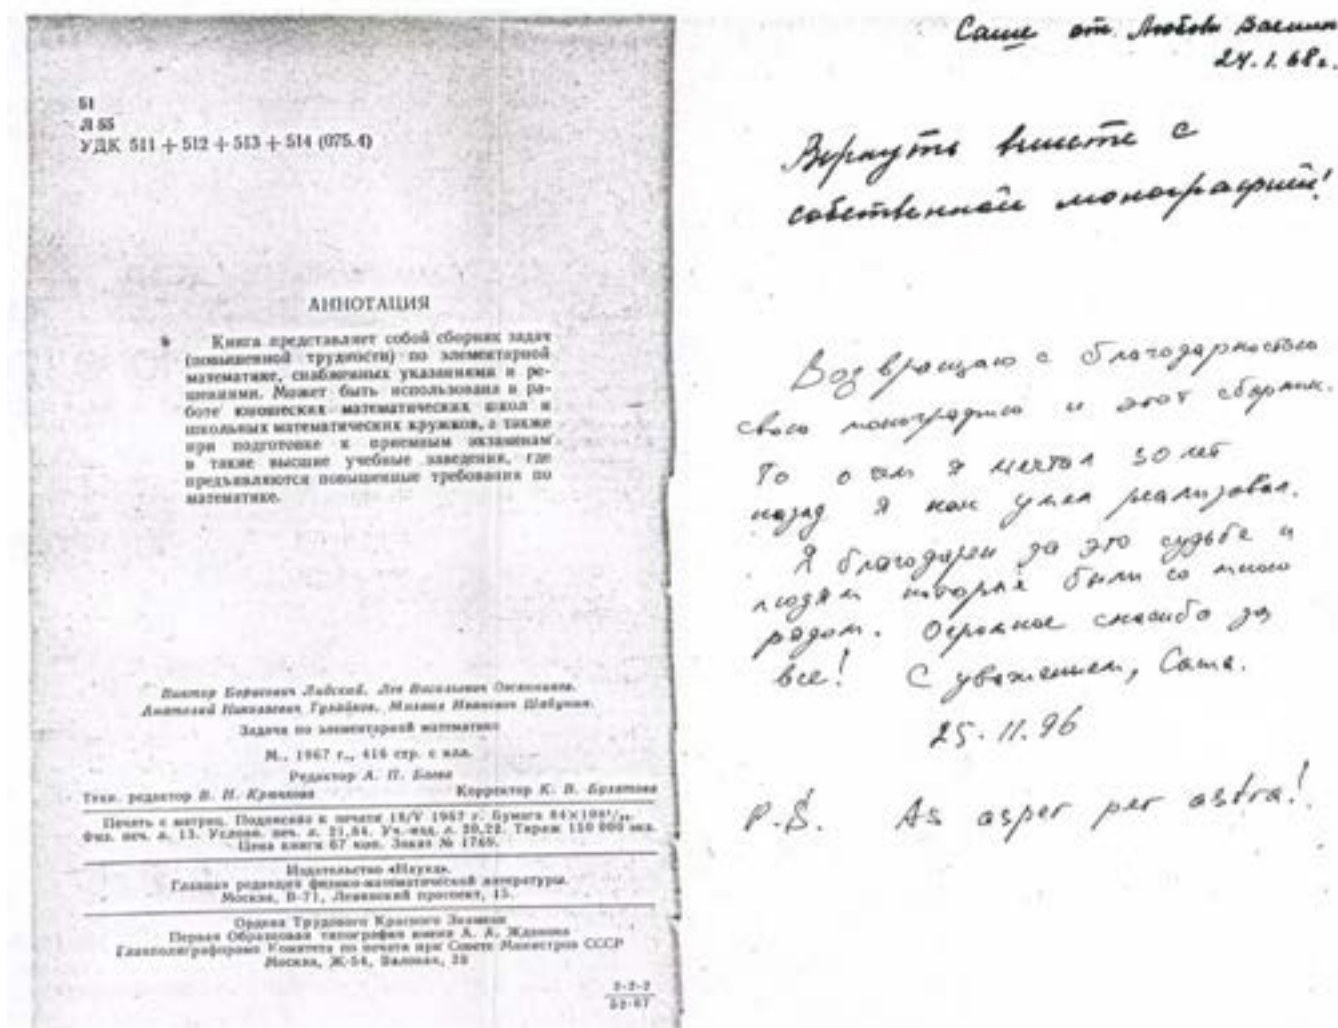 51
Л 55
УДК 511 + 512 + 513 + 514 (075.4)
АННОТАЦИЯ
Книга представляет собой сборник задач
(повышенной трудности) по элементарной
математике, снабженных указаниями и ре-
шениями. Может быть использована в ра-
боте юношеских математических школ и
школьных математических кружков, а также
при подготовке к приемным экзаменам
в такие высшие учебные заведения, где
предъявляются повышенные требования по
математике.
Виктор Борисович Лидский, Лев Васильевич Овсянников,
Анатолий Николаевич Тулайков, Михаил Иванович Шабунин.
Задачи по элементарной математике
М., 1967 г., 416 стр. с илл.
Редактор А. П. Баева
Техн. редактор В. Н. Крючкова Корректор К. В. Булатова
Печать с матриц. Подписано к печати 18/V 1967 г. Бумага 84×108¹/₃₂.
Физ. печ. л. 13. Условн. печ. л. 21,84. Уч.-изд. л. 20,22. Тираж 150 000 экз.
Цена книги 67 коп. Заказ № 1769.
Издательство «Наука».
Главная редакция физико-математической литературы.
Москва, В-71, Ленинский проспект, 15.
Ордена Трудового Красного Знамени
Первая Образцовая типография имени А. А. Жданова
Главполиграфпрома Комитета по печати при Совете Министров СССР
Москва, Ж-54, Валовая, 28
2-2-2
52-67
Саше от Любови Василь
24.1.68г.
Вернуть вместе с
собственной монографией!
Возвращаю с благодарностью
свою монографию и этот сборник.
То о чем я мечтал 30 лет
назад я как умел реализовал.
Я благодарен за это судьбе и
людям которые были со мною
рядом. Огромное спасибо за
все! С уважением, Саша.
25.11.96
P.S. As asper per astra!